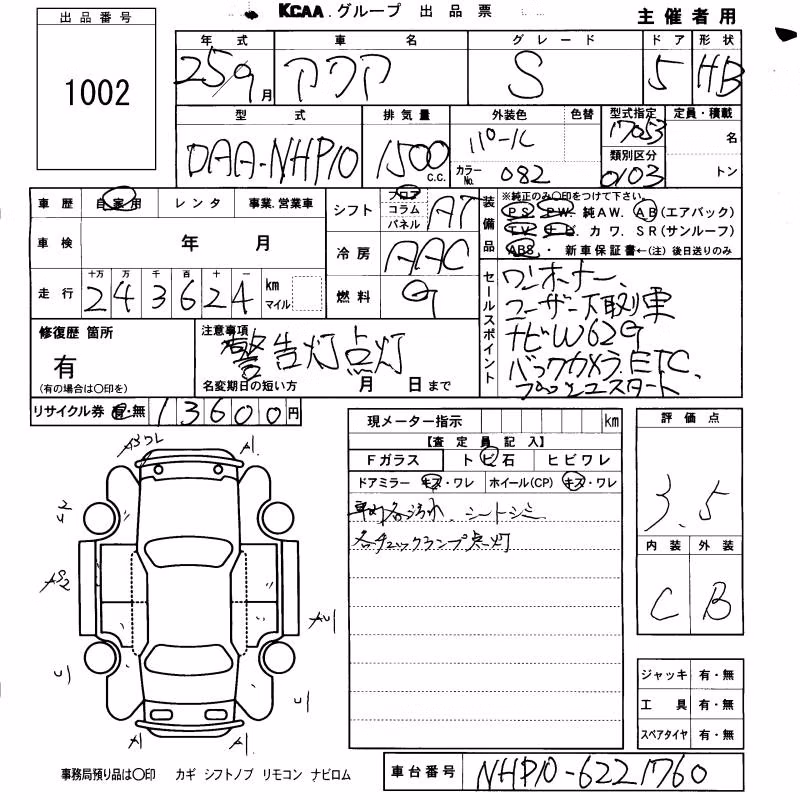 KCAA グループ 出品票
主催者用
出品番号
1002
年式 車名 グレード ドア 形状
25/9月 アクア S 5 HB
型式 排気量 外装色 色替 型式指定 定員・積載
DAA-NHP10 1500 C.C. パール 17053 名
カラーNo. 082 類別区分 0103 トン
車歴 自家用 レンタ 事業.営業車
車検 年 月
走行 十万 万 千 百 十 一 km マイル
2 4 3 6 2 4
シフト フロア コラム パネル AT
冷房 AAC
燃料 G
装備品 ※純正のみ○印をつけて下さい
PS. PW. 純AW. AB(エアバック)
TV. ナビ. カワ. SR(サンルーフ)
ABS ・ 新車保証書←(注) 後日送りのみ
セールスポイント
ワンオーナー、
ユーザー下取り車
ナビW62G
バックカメラ.ETC.
プッシュスタート
修復歴 箇所
有
(有の場合は○印を)
注意事項
警告灯点灯
名変期日の短い方 月 日まで
リサイクル券 有・無 13600円
現メーター指示 km
【査定員記入】
Fガラス トビ石 ヒビワレ
ドアミラー キズ・ワレ ホイール(CP) キズ・ワレ
車内各汚れ、シートシミ
各チェックランプ点灯
評価点
3.5
内装 外装
C B
A1
A1
A1
ジャッキ 有・無
工具 有・無
スペアタイヤ 有・無
事務局預り品は○印 カギ シフトノブ リモコン ナビロム
車台番号 NHP10-6221760